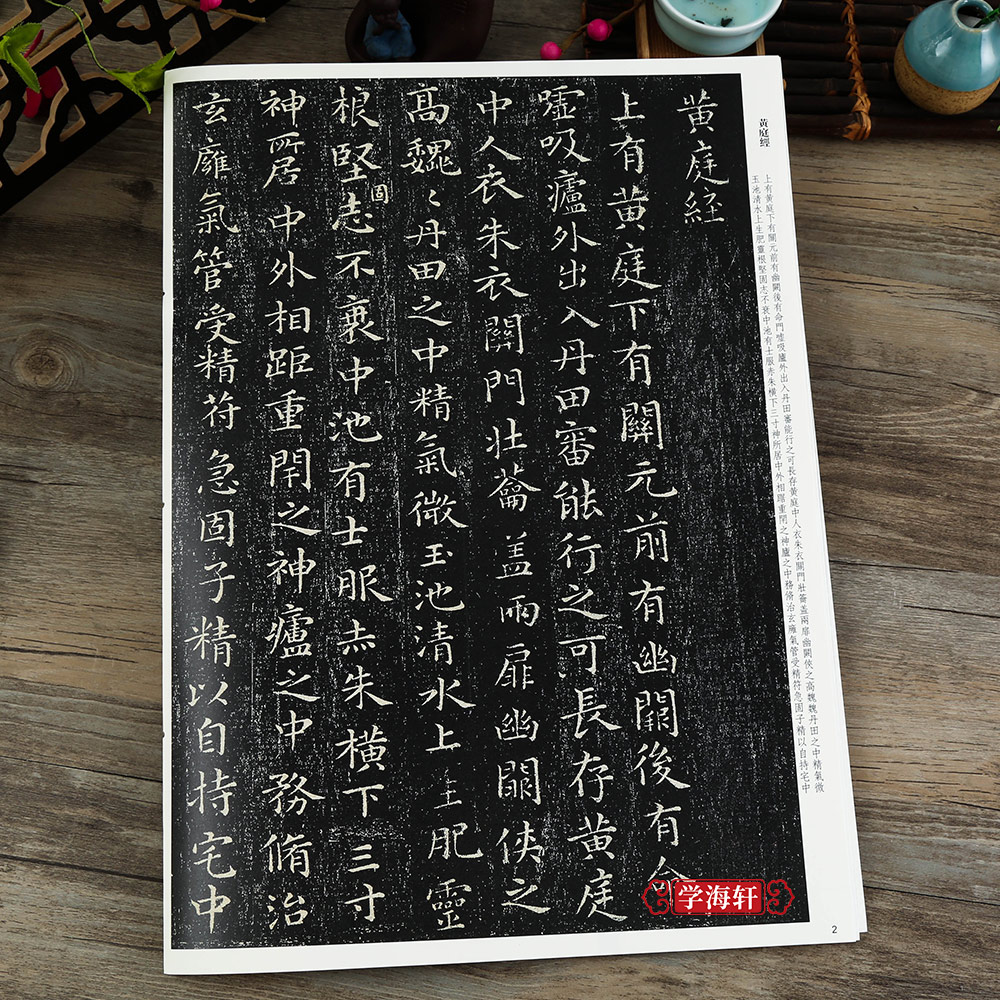 黃庭經
上有黃庭下有關元前有幽闕後有命門噓吸廬外出入丹田審能行之可長存黃庭中人衣朱衣關門壯蘥蓋兩扉幽闕俠之高魏魏丹田之中精氣微
玉池清水上生肥靈根堅固志不衰中池有士服赤朱橫下三寸神所居中外相距重閇之神廬之中務脩治玄廱氣管受精符急固子精以自持宅中
黄庭経
上有黄庭下有關元前有幽闕後有命
嘘吸廬外出入丹田審能行之可長存黄庭
中人衣朱衣關門壯蘥盖兩扉幽闕俠之
高魏〻丹田之中精氣微玉池清水上生肥靈
根堅固志不衰中池有士服赤朱横下三寸
神所居中外相距重閇之神廬之中務脩治
玄廱氣管受精符急固子精以自持宅中
学海轩
2